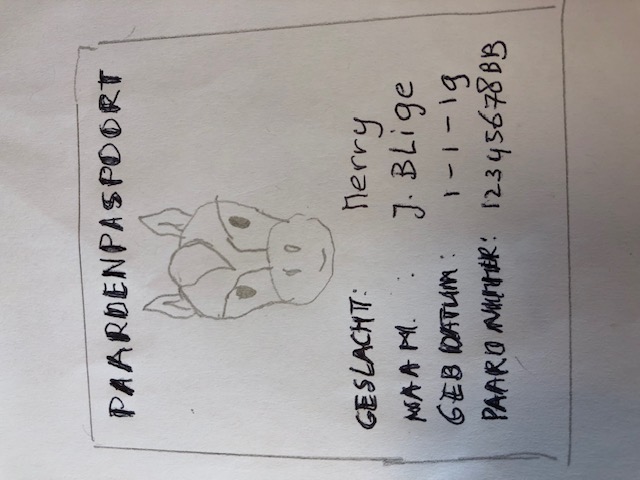 PAARDENPASPOORT
GESLACHT: Merry
NAAM. : J. BLige
GEB DATUM: 1-1-19
PAARD NUMMER: 12345678BB